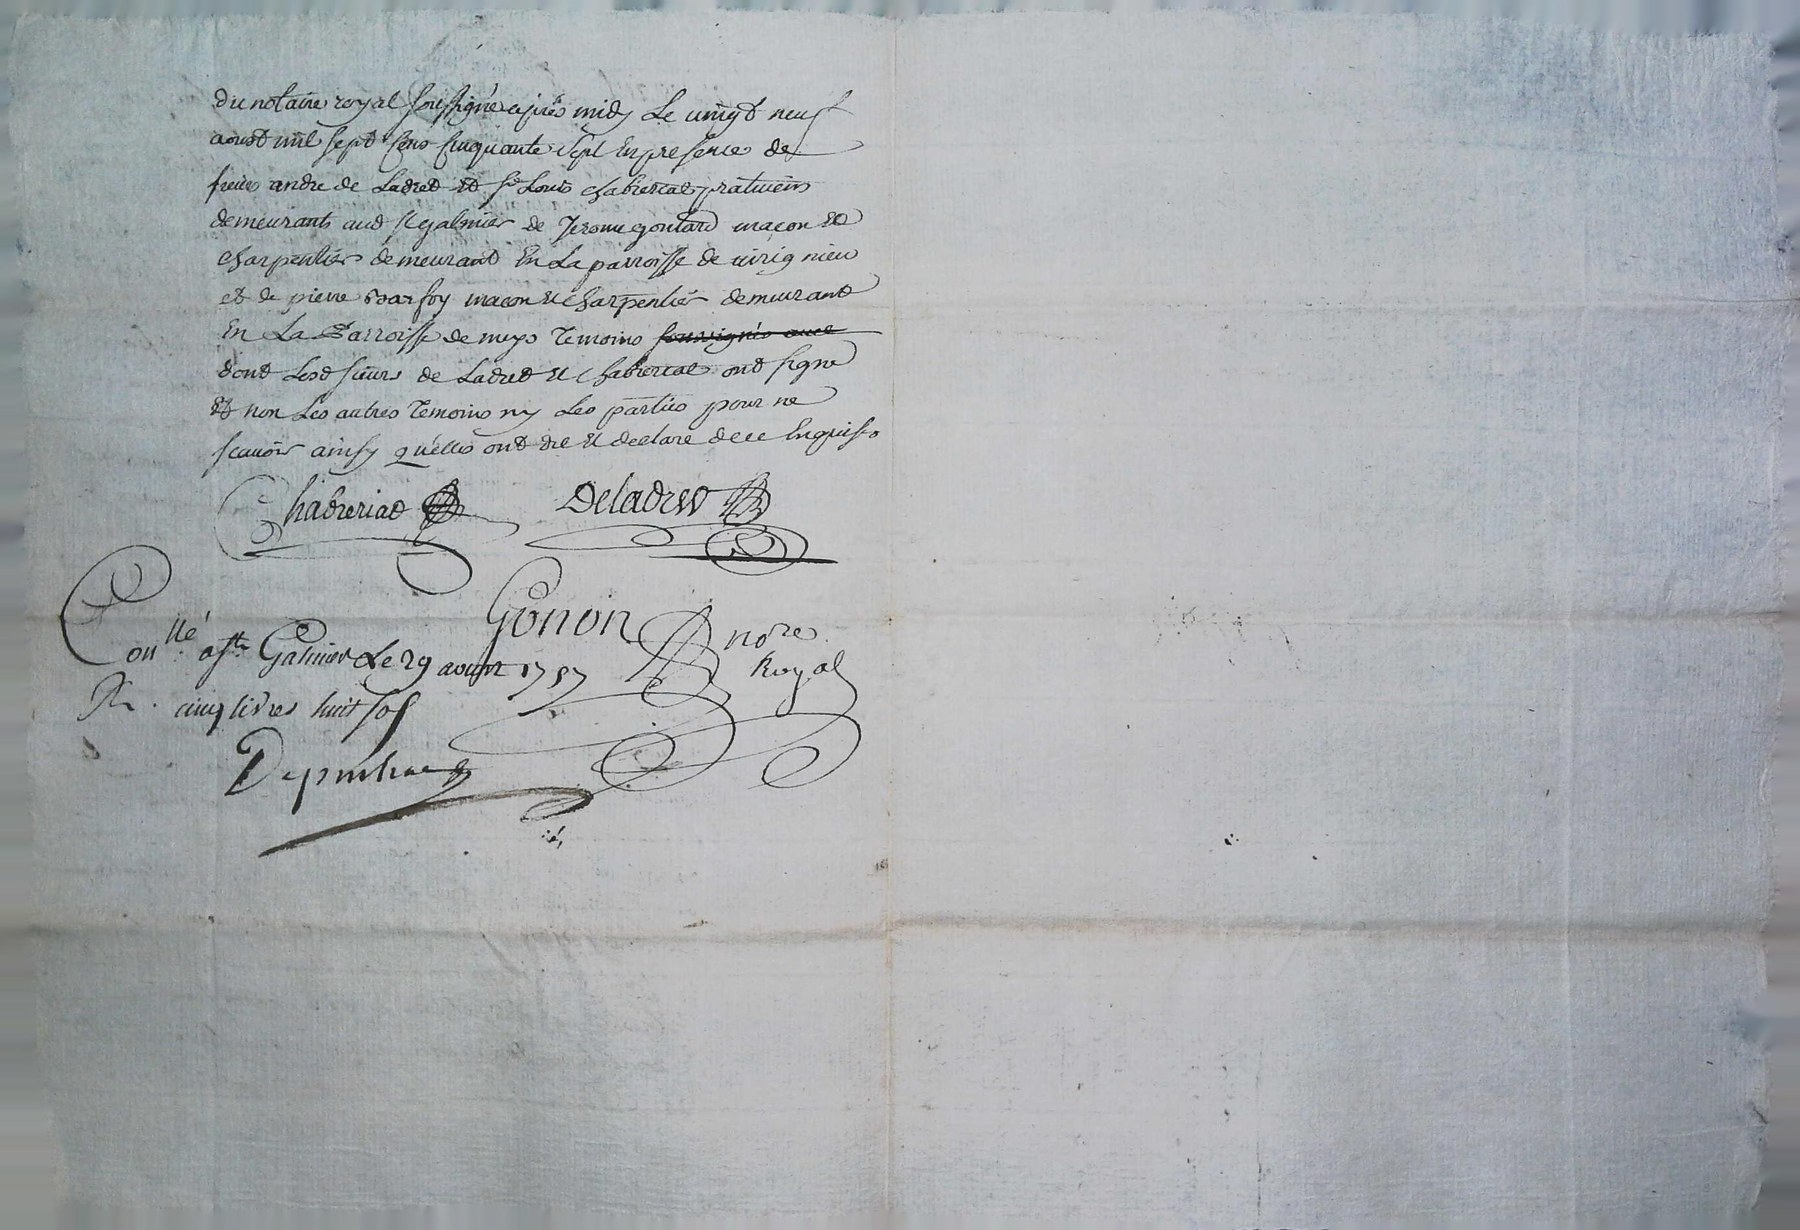 du notaire royal soussigné apres midy Le vingt neuf
aoust mil sept cens cinquante sept En presence de
andre de Ladret et Sr Louis chabreriat praticiens
demeurants aud St galmier de Jerome goutard macon et
charpentier demeurant En La parroisse de virignieu
et de pierre macon et charpentier demeurant
En La Parroisse de meys Temoins soussignés avec
dont Lesd sieurs de Ladret et chabreriat ont signé
et non Les autres Temoins ny Les parties pour ne
scavoir ainsy qu'elles ont dit et declaré de ce Enquises
Chabreriat Deladret
Gonon nore
Royal
Conllé a St Galmier Le 29 aoust 1757
R. cinq livres huit sols